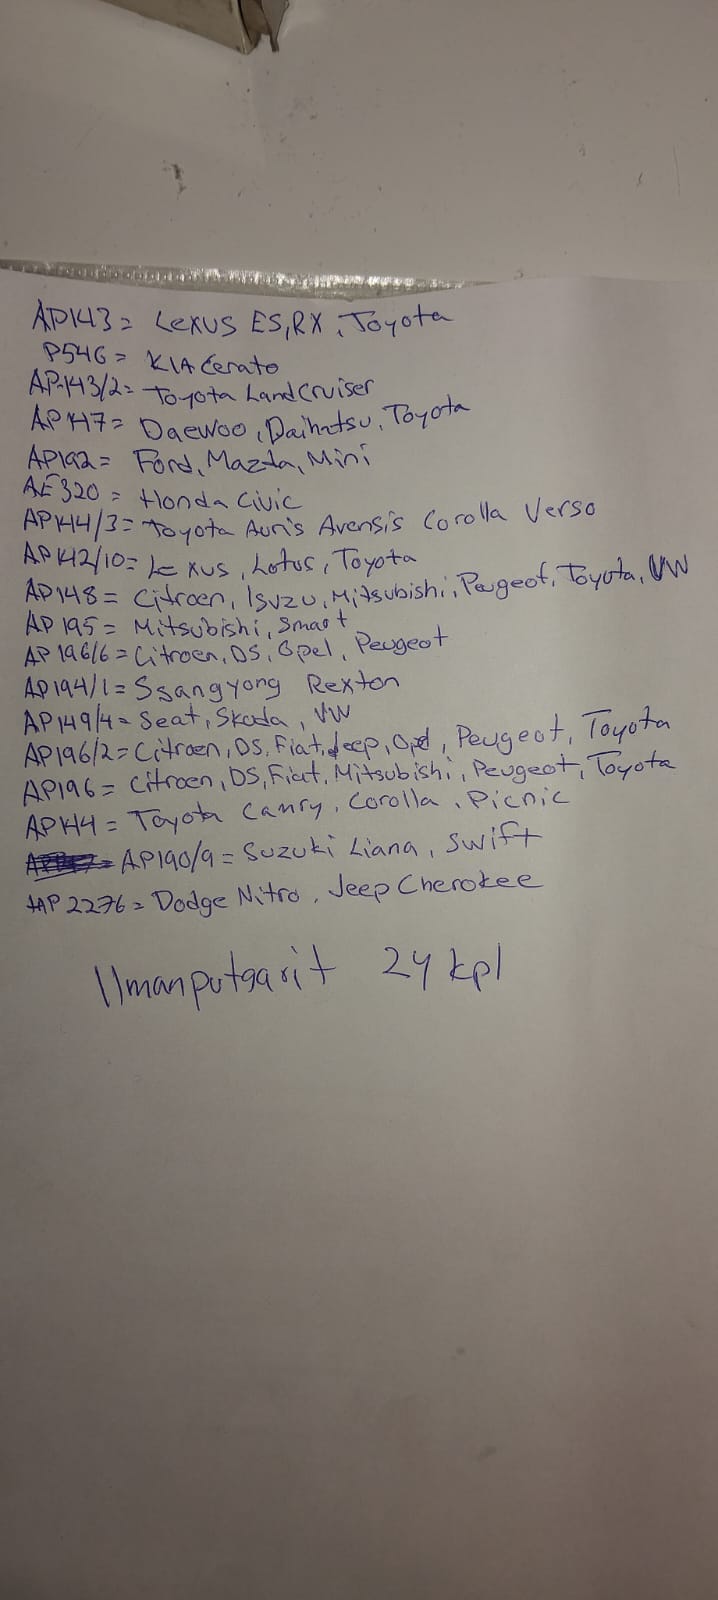 AP143= Lexus ES,RX, Toyota
P546= KIA Cerato
AP-143/2= Toyota Landcruiser
AP147= Daewoo, Daihatsu, Toyota
AP192= Ford, Mazda, Mini
AE320= Honda Civic
AP144/3= Toyota Auris Avensis Corolla Verso
AP142/10= Lexus, Lotus, Toyota
AP148= Citroen, Isuzu, Mitsubishi, Peugeot, Toyota, VW
AP195= Mitsubishi, Smart
AP196/6= Citroen, DS, Opel, Peugeot
AP194/1= Ssangyong Rexton
AP149/4= Seat, Skoda, VW
AP196/2= Citroen, DS, Fiat, Jeep, Opel, Peugeot, Toyota
AP196= Citroen, DS, Fiat, Mitsubishi, Peugeot, Toyota
AP144= Toyota Camry, Corolla, Picnic
AP190/9= Suzuki Liana, Swift
2276= Dodge Nitro, Jeep Cherokee
Ilmanputsarit 24 kpl